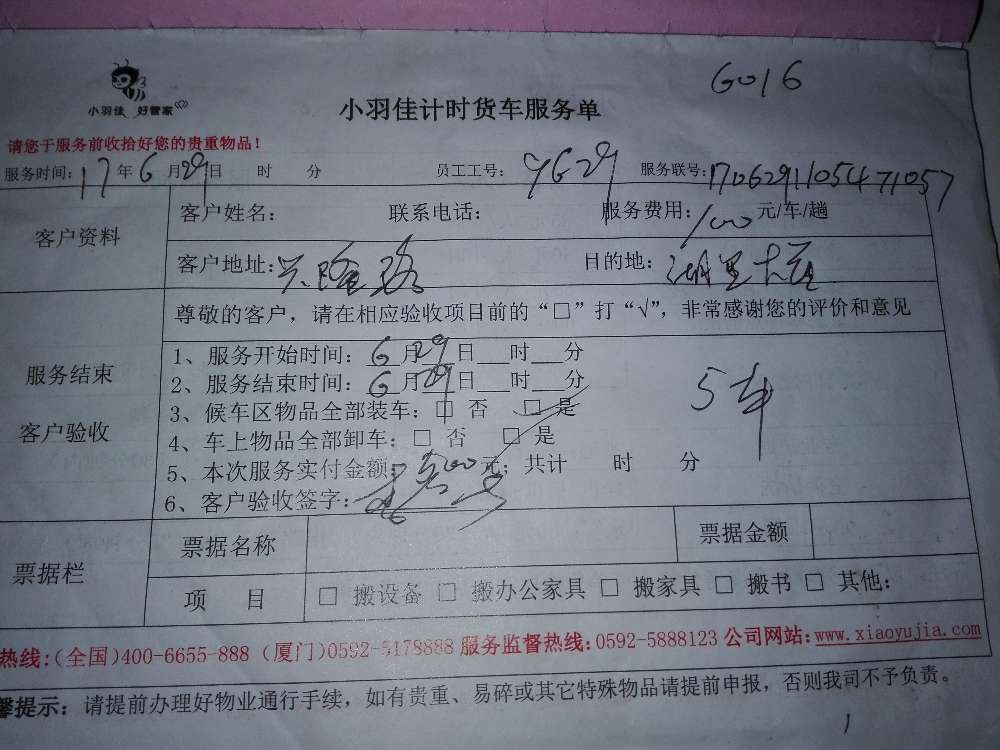 G016
小羽佳 好管家
小羽佳计时货车服务单
请您于服务前收拾好您的贵重物品！
服务时间：17年6月29日 时 分 员工工号： 服务联号：1706291105471057
客户资料
客户姓名： 联系电话： 服务费用：100元/车/趟
客户地址：兴隆路 目的地：湖里
服务结束
客户验收
尊敬的客户，请在相应验收项目前的“□”打“√”，非常感谢您的评价和意见
1、服务开始时间：6月29日 时 分
2、服务结束时间：6月29日 时 分
3、候车区物品全部装车：□ 否 □ 是
4、车上物品全部卸车：□ 否 □ 是
5、本次服务实付金额：500元；共计 时 分
6、客户验收签字：
5车
票据栏
票据名称 票据金额
项 目 □ 搬设备 □ 搬办公家具 □ 搬家具 □ 搬书 □ 其他：
热线：(全国)400-6655-888 (厦门)0592-5178888 服务监督热线：0592-5888123 公司网站：www.xiaoyujia.com
馨提示：请提前办理好物业通行手续，如有贵重、易碎或其它特殊物品请提前申报，否则我司不予负责。
1